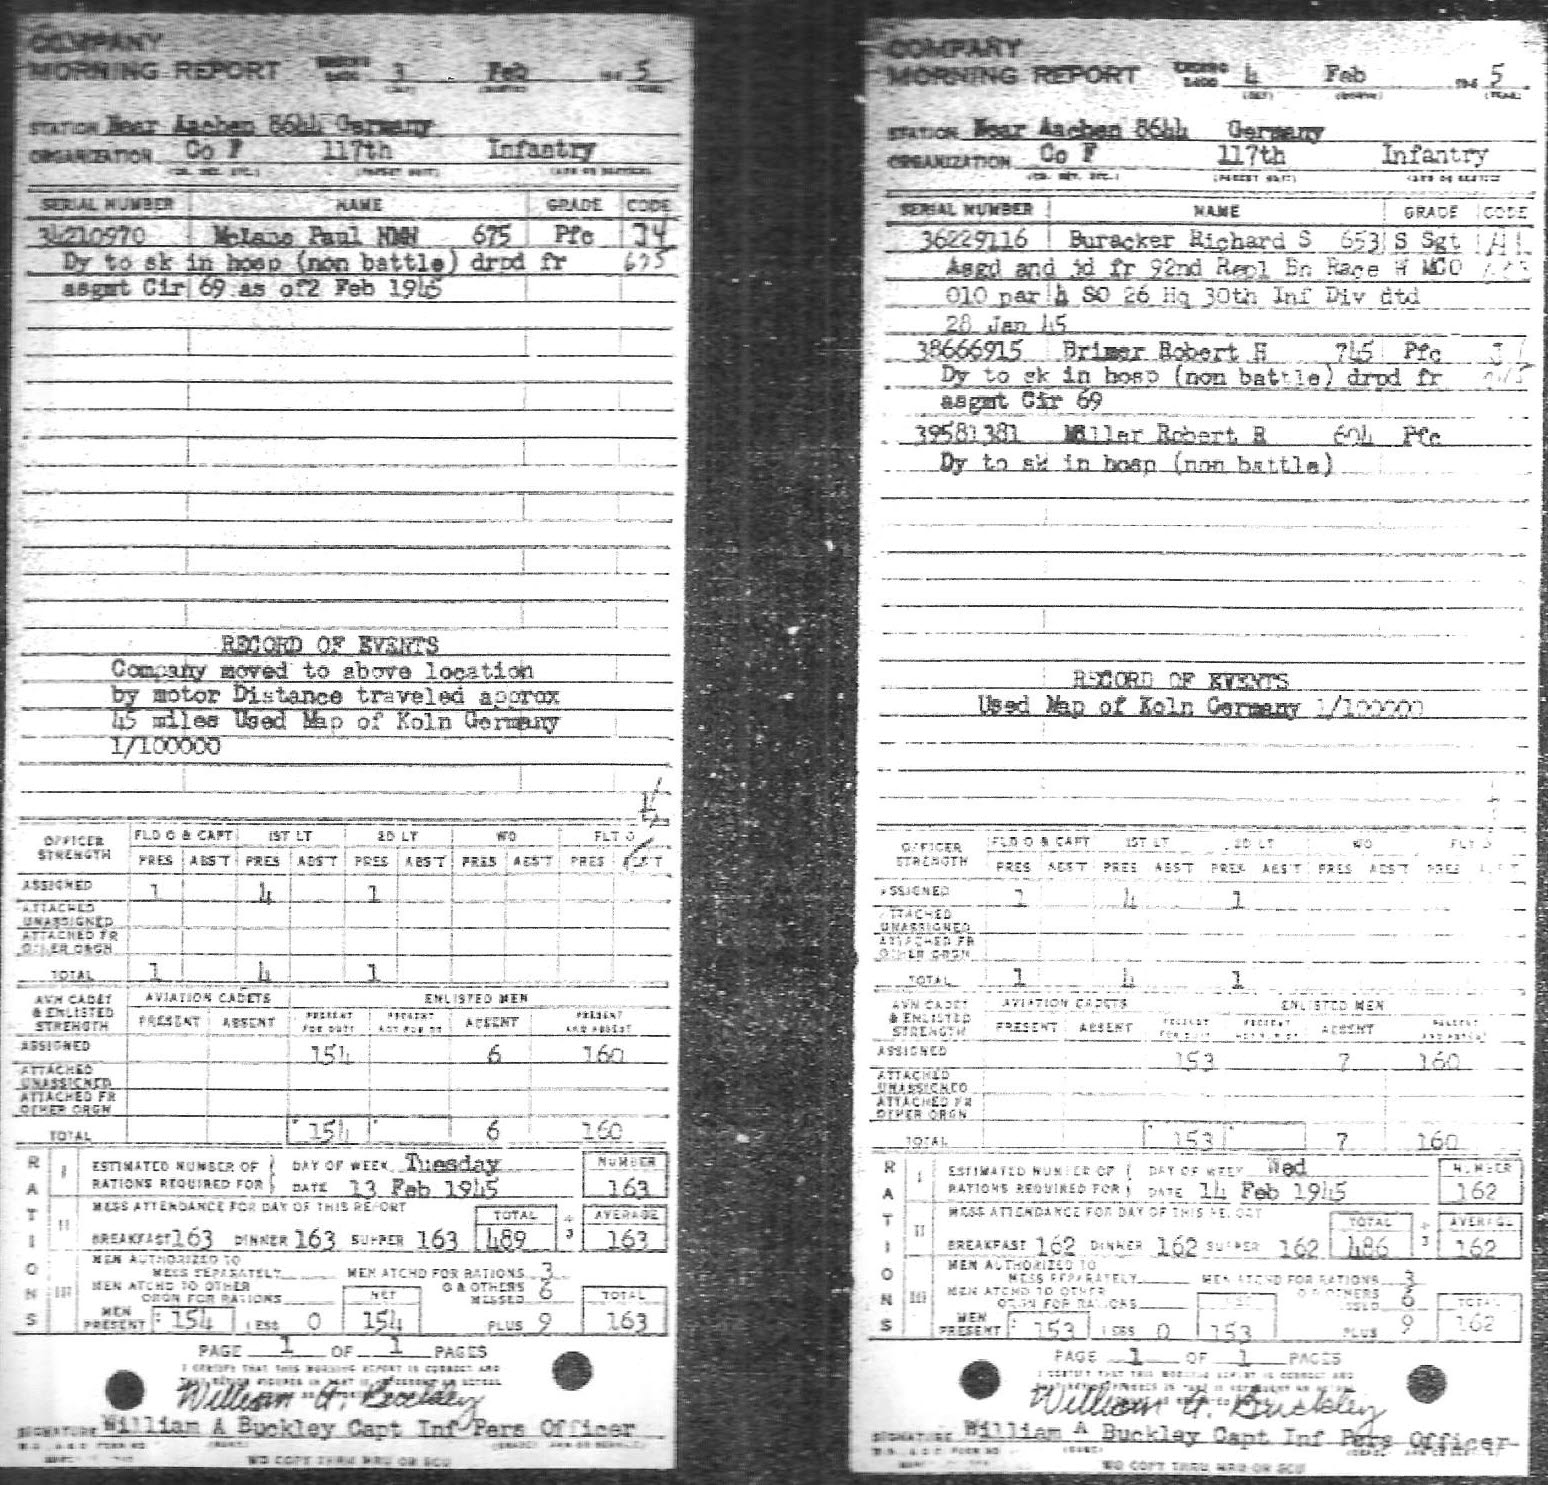 COMPANY
MORNING REPORT ENDING 2400 3 Feb 194 5
(DAY) (MONTH) (YEAR)
STATION Near Aachen 8644 Germany
ORGANIZATION Co F 117th Infantry
SERIAL NUMBER NAME GRADE CODE
34210970 McLane Paul NMN 675 Pfc
Dy to sk in hosp (non battle) drpd fr
asgmt Cir 69 as of2 Feb 1945
RECORD OF EVENTS
Company moved to above location
by motor Distance traveled approx
45 miles Used Map of Koln Germany
1/100000
OFFICER STRENGTH FLD O & CAPT 1ST LT 2D LT WO FLT O
PRES ABS'T PRES ABS'T PRES ABS'T PRES ABS'T PRES
ASSIGNED 1 4 1
ATTACHED UNASSIGNED
ATTACHED FR OTHER ORGN
TOTAL 1 4 1
AVN CADET & ENLISTED STRENGTH AVIATION CADETS ENLISTED MEN
PRESENT ABSENT PRESENT FOR DUTY PRESENT NOT FOR DY ABSENT PRESENT AND ABSENT
ASSIGNED 154 6 160
ATTACHED UNASSIGNED
ATTACHED FR OTHER ORGN
TOTAL 154 6 160
RATIONS
I ESTIMATED NUMBER OF DAY OF WEEK Tuesday NUMBER
RATIONS REQUIRED FOR DATE 13 Feb 1945 163
II MESS ATTENDANCE FOR DAY OF THIS REPORT TOTAL ÷ AVERAGE
BREAKFAST 163 DINNER 163 SUPPER 163 489 3 163
III MEN AUTHORIZED TO
MESS SEPARATELY MEN ATCHD FOR RATIONS 3
MEN ATCHD TO OTHER O & OTHERS
ORGN FOR RATIONS NET MESSED 6 TOTAL
MEN PRESENT 154 LESS 0 154 PLUS 9 163
PAGE 1 OF 1 PAGES
I CERTIFY THAT THIS MORNING REPORT IS CORRECT AND
William A. Buckley
SIGNATURE William A Buckley Capt Inf Pers Officer
NO COPY THRU MRU OR SCU
COMPANY
MORNING REPORT ENDING 2400 4 Feb 194 5
(DAY) (MONTH) (YEAR)
STATION Near Aachen 8644 Germany
ORGANIZATION Co F 117th Infantry
SERIAL NUMBER NAME GRADE CODE
36229116 Buracker Richard S 653 S Sgt
Asgd and jd fr 92nd Repl Bn Race W MCO
010 par 4 SO 26 Hq 30th Inf Div dtd
28 Jan 45
38666915 Brimer Robert H 745 Pfc
Dy to sk in hosp (non battle) drpd fr
asgmt Cir 69
39581381 Miller Robert R 604 Pfc
Dy to sk in hosp (non battle)
RECORD OF EVENTS
Used Map of Koln Germany 1/100000
OFFICER STRENGTH FLD O & CAPT 1ST LT 2D LT WO FLT O
PRES ABS'T PRES ABS'T PRES ABS'T PRES ABS'T PRES
ASSIGNED 1 4 1
ATTACHED UNASSIGNED
ATTACHED FR OTHER ORGN
TOTAL 1 4 1
AVN CADET & ENLISTED STRENGTH AVIATION CADETS ENLISTED MEN
PRESENT ABSENT PRESENT FOR DUTY PRESENT NOT FOR DY ABSENT PRESENT AND ABSENT
ASSIGNED 153 7 160
ATTACHED UNASSIGNED
ATTACHED FR OTHER ORGN
TOTAL 153 7 160
RATIONS
I ESTIMATED NUMBER OF DAY OF WEEK Wed NUMBER
RATIONS REQUIRED FOR DATE 14 Feb 1945 162
II MESS ATTENDANCE FOR DAY OF THIS REPORT TOTAL ÷ AVERAGE
BREAKFAST 162 DINNER 162 SUPPER 162 486 3 162
III MEN AUTHORIZED TO
MESS SEPARATELY MEN ATCHD FOR RATIONS 3
MEN ATCHD TO OTHER O & OTHERS
ORGN FOR RATIONS NET MESSED 6 TOTAL
MEN PRESENT 153 LESS 0 153 PLUS 9 162
PAGE 1 OF 1 PAGES
I CERTIFY THAT THIS MORNING REPORT IS CORRECT AND
William A. Buckley
SIGNATURE William A Buckley Capt Inf Pers Officer
NO COPY THRU MRU OR SCU